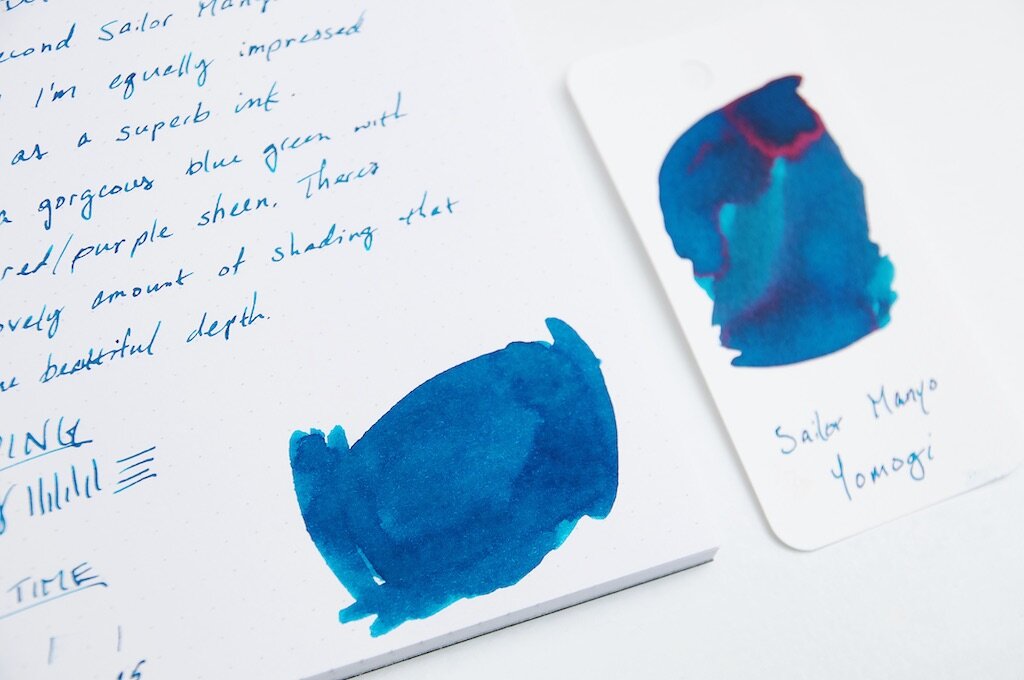 second Sailor Many
I'm equally impressed
as a superb ink.
a gorgeous blue green with
red/purple sheen. Theres
lovely amount of shading that
beautiful depth.
TIME
Sailor Manyo
Yomogi